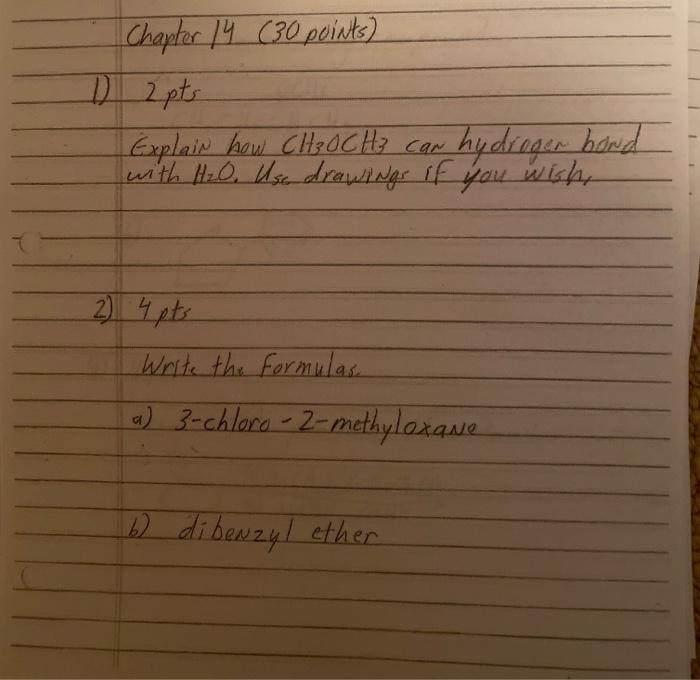 Chapter 14 (30 points)
1) 2 pts
Explain how CH3OCH3 can hydrogen bond
with H2O. Use drawings if you wish.
2) 4 pts
Write the formulas.
a) 3-chloro-2-methyloxane
b) dibenzyl ether